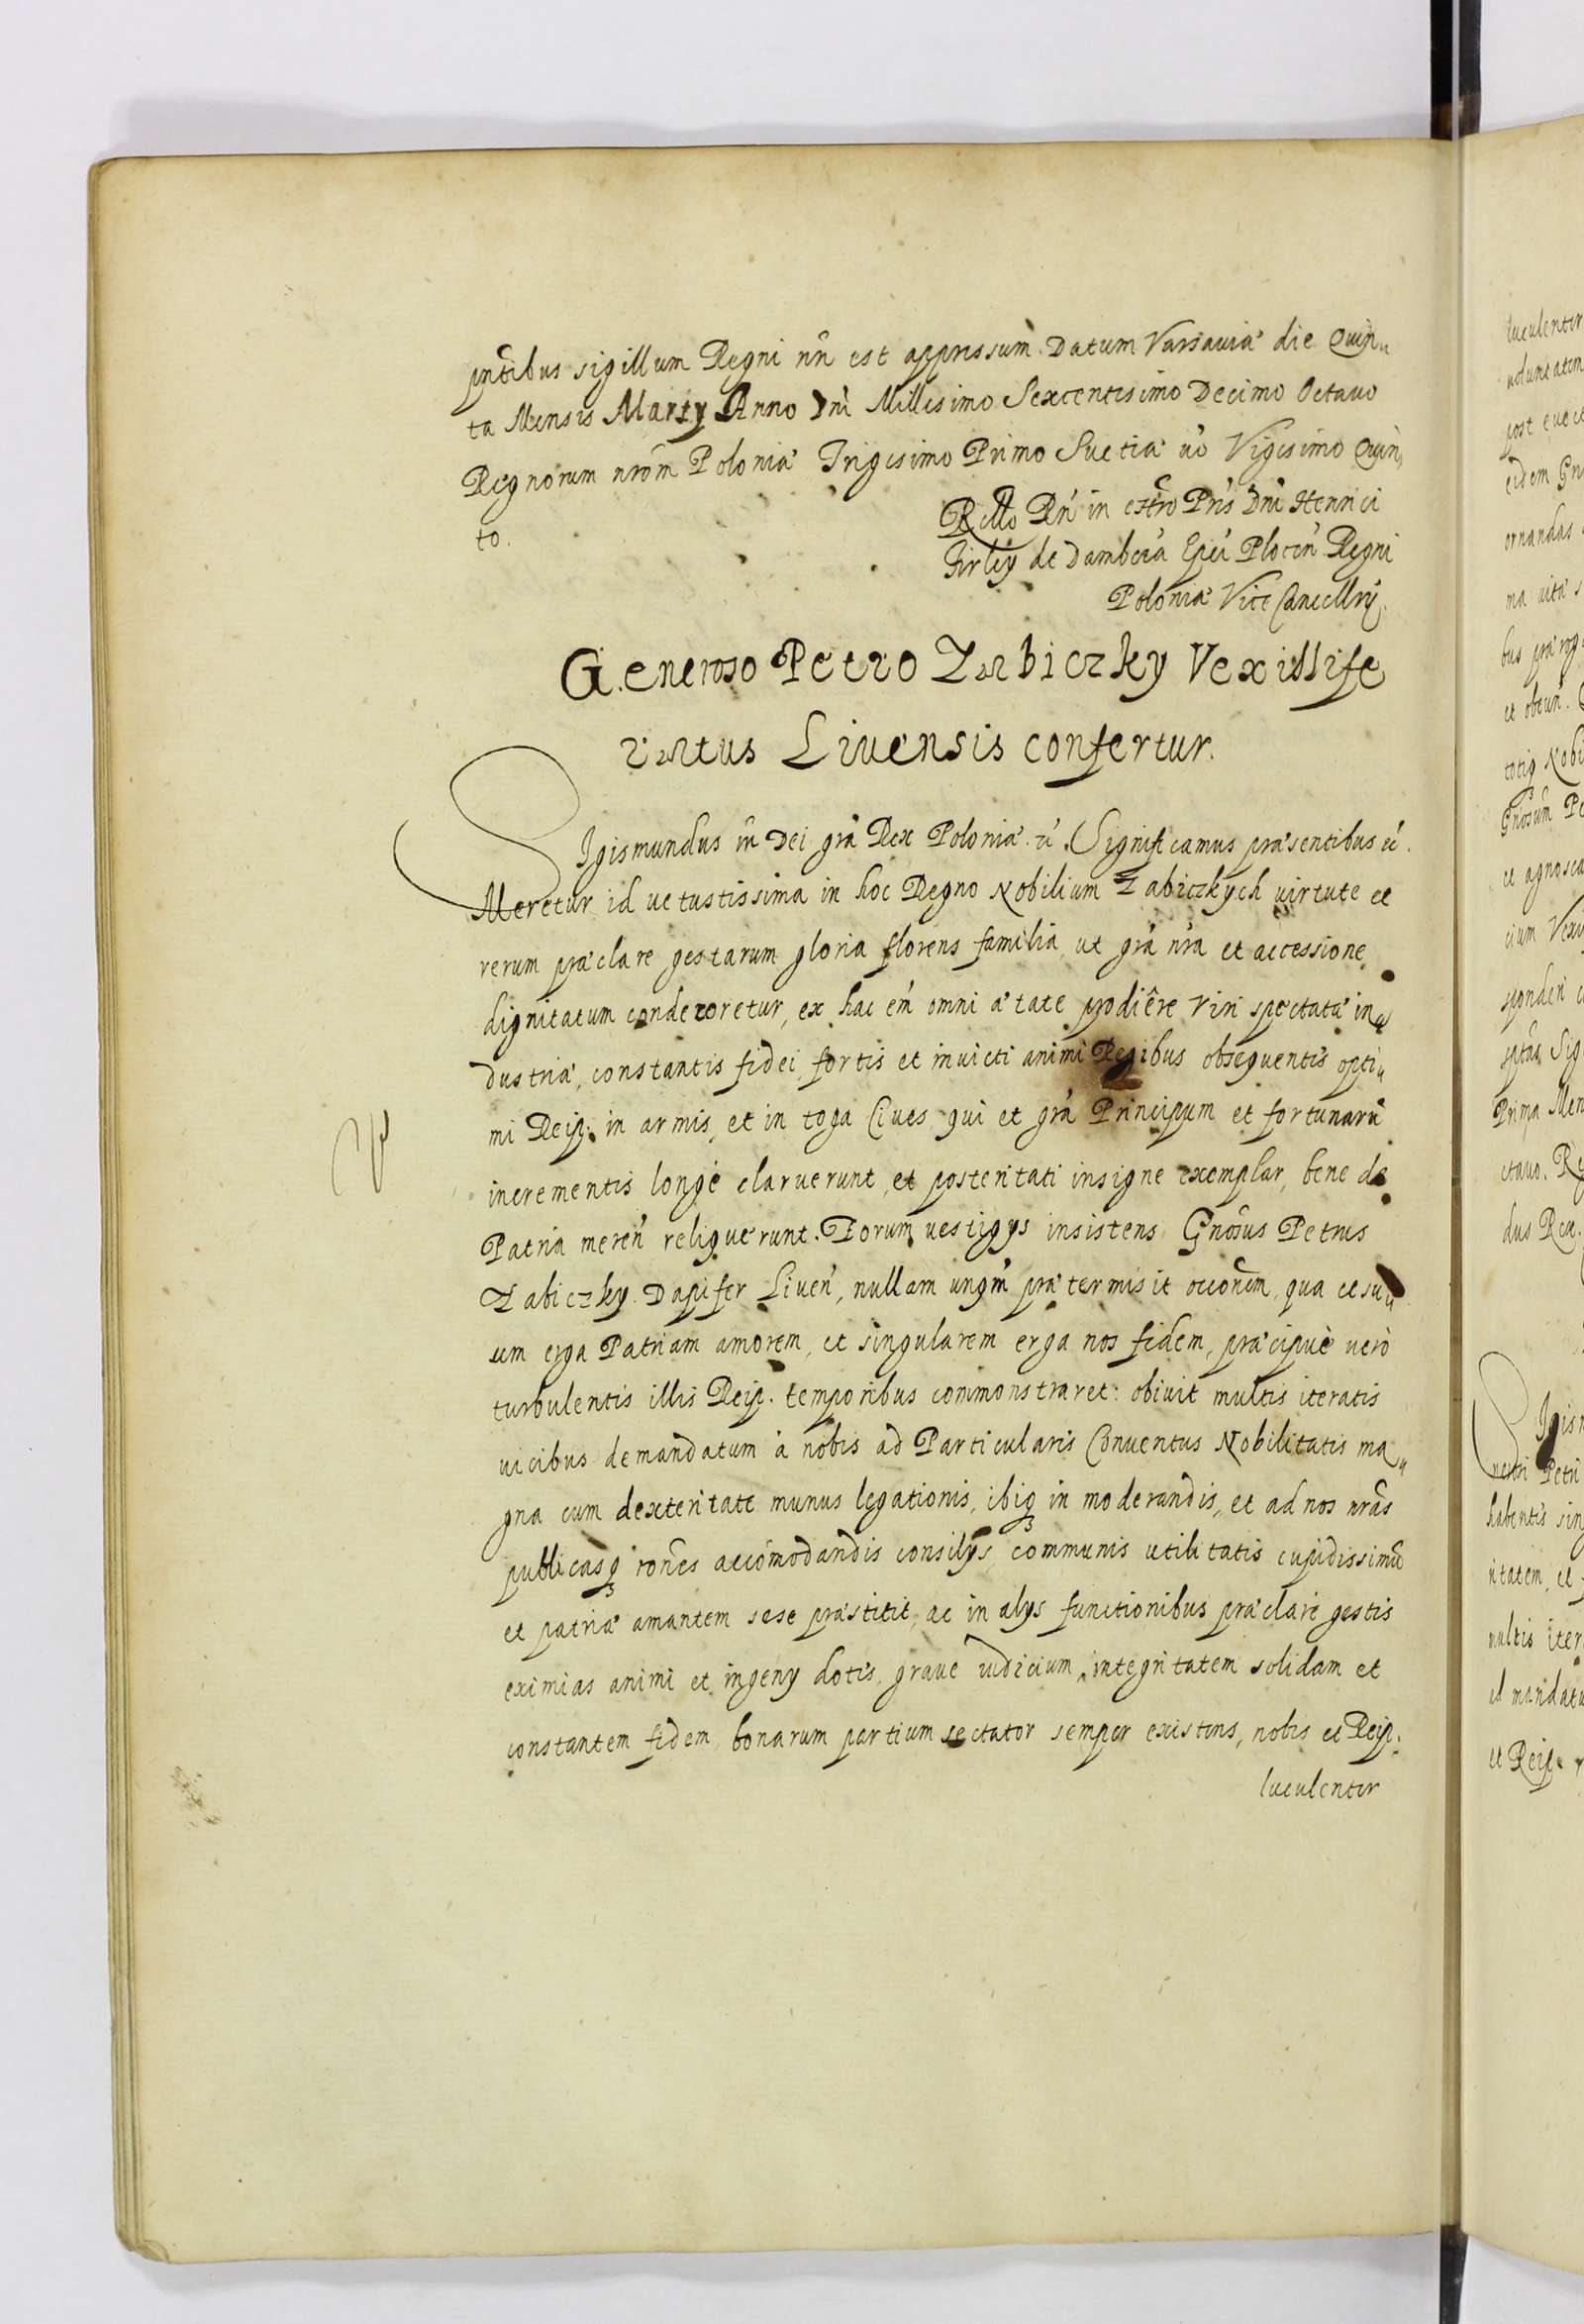 pntibus sigillum Regni nrn est appressum. Datum Varsauiæ die Quin„
ta Mensis Marty Anno Dni Millesimo Sexcentesimo Decimo Octauo
Regnorum nrorm Poloniæ Trigesimo Primo Suetiæ uo Vigesimo Quin„
to.
Rello Rn in Xtro Pris Dni Henrici
Firley de Dambrouica Epei Plocen Regni
Poloniæ Vice Cancellrÿ.
Generoso Petro Zabiczky Vexillife
ratus Liuensis confertur.
SIgismundus iii Dei gra Rex Poloniæ. et. Significamus præsentibus et.
Meretur id uetustissima in hoc Regno Nobilium Zabiczkych uirtute et
rerum præclare gestarum gloria florens familia, ut gra nra et accessione
dignitatum condecoretur, ex hac em omni ætate prodiêre Viri spectatæ in„
dustriæ, constantis fidei, fortis et inuicti animi Regibus obsequentis opti„
mi Reip. in armis, et in toga Ciues qui et gra Principum et fortunaru
incrementis longè claruerunt, et posteritati insigne exemplar, bene de
Patria meren reliquerunt. Eorum uestigys insistens Gnosus Petrus
Zabiczky Dapifer Liuen, nullam unqm prætermisit occonem, qua et su„
um erga Patriam amorem, et singularem erga nos fidem, præcipuè uerò
turbulentis illis Reip. temporibus commonstraret: obiuit multis iteratis
uicibus demandatum à nobis ad Particularis Conuentus Nobilitatis ma„
gna cum dexteritate munus legationis, ibiq3 in moderandis, et ad nos nras
publicasq3 rones accomodandis consilys, communis utilitatis cupidissimu
et patriæ amantem sese præstitit, ac in alys functionibus præclarè gestis
eximias animi et ingeny dotis, graue iudicium, integritatem solidam et
constantem fidem, bonarum partium sectator semper existens, nobis et Reip.
luculenter
luculenter
uoluntatem
post
eidem Gn
ornandas
ma uitæ s
bus prærog
et obeun.
totiq3 Nobi
Gnosum Pe
et agnosca
cium Vexi
sponden
Sig
Prima Men
ctauo. Re
dus Rex.
SIgism
Petri
habentis sing
ritatem, et f
multis iter
id mandatu
et Reip.